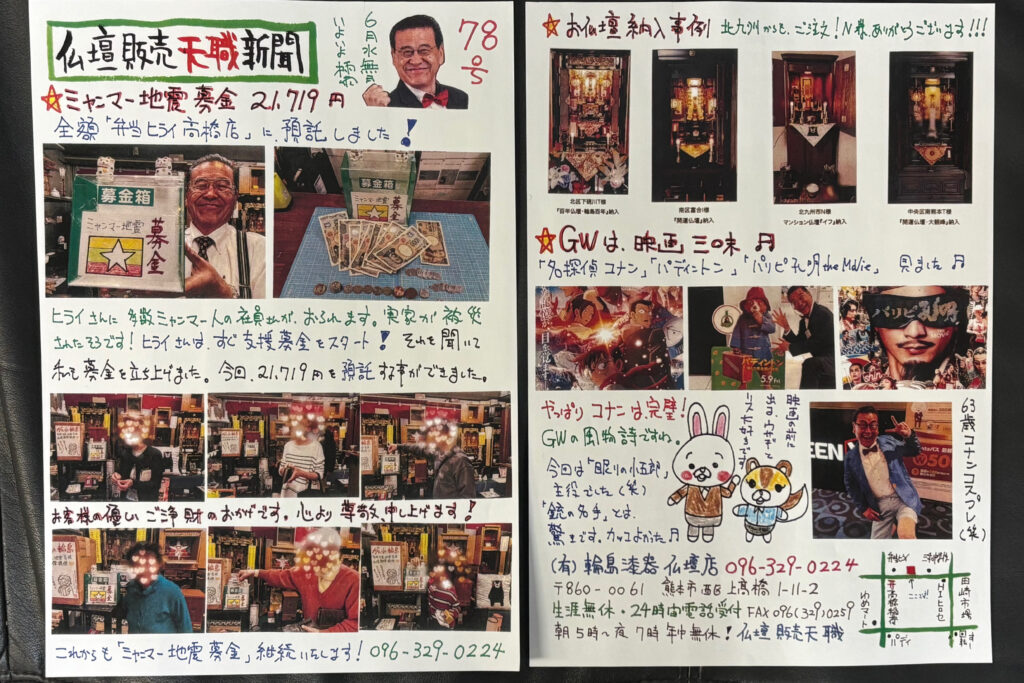 仏壇販売天職新聞
6月水無月
78号
☆ミャンマー地震募金 21,719円
全額「弁当ヒライ高橋店」に預託しました!
募金箱
ミャンマー地震
募金
募金箱
ミャンマー地震
募金
ヒライさんに多数ミャンマー人の社員さんがおられます。実家が被災
されたそうです!ヒライさんは、すぐ支援募金をスタート!それを聞いて
私も募金を立ち上げました。今回、21,719円を預託する事ができました。
お客様の優しいご浄財のおかげです。心より尊敬申し上げます!
これからも「ミャンマー地震募金」継続いたします! 096-329-0224
☆お仏壇納入事例 北九州からも、ご注文!N様、ありがとうございます!!!
北区下硯川T様
『百年仏壇・輪島百年』納入
南区富合I様
『開運仏壇』納入
北九州市N様
マンション仏壇『イフ』納入
中央区南熊本T様
『開運仏壇・大観峰』納入
☆GWは、映画三昧♬
「名探偵コナン」「パディントン」「パリピ孔明the Movie」見ました♬
パディントン
5.9 Fri
パリピ孔明
やっぱりコナンは完璧!
GWの風物詩ですね。
今回は「眠りの小五郎」
主役でした(笑)
「銃の名手」とは、
驚きです。カッコよかった♬
映画の前に
出る、ウサギと
リス大好きです
63歳コナンコスプレ(笑)
(有)輪島漆器仏壇店 096-329-0224
〒860-0061 熊本市西区上高橋1-11-2
生涯無休・24時間電話受付 FAX 096(329)0259
朝5時〜夜7時 年中無休!仏壇販売天職
ここ!
田崎市場
ゆめマート
弁当ヒライ高橋店
パティ